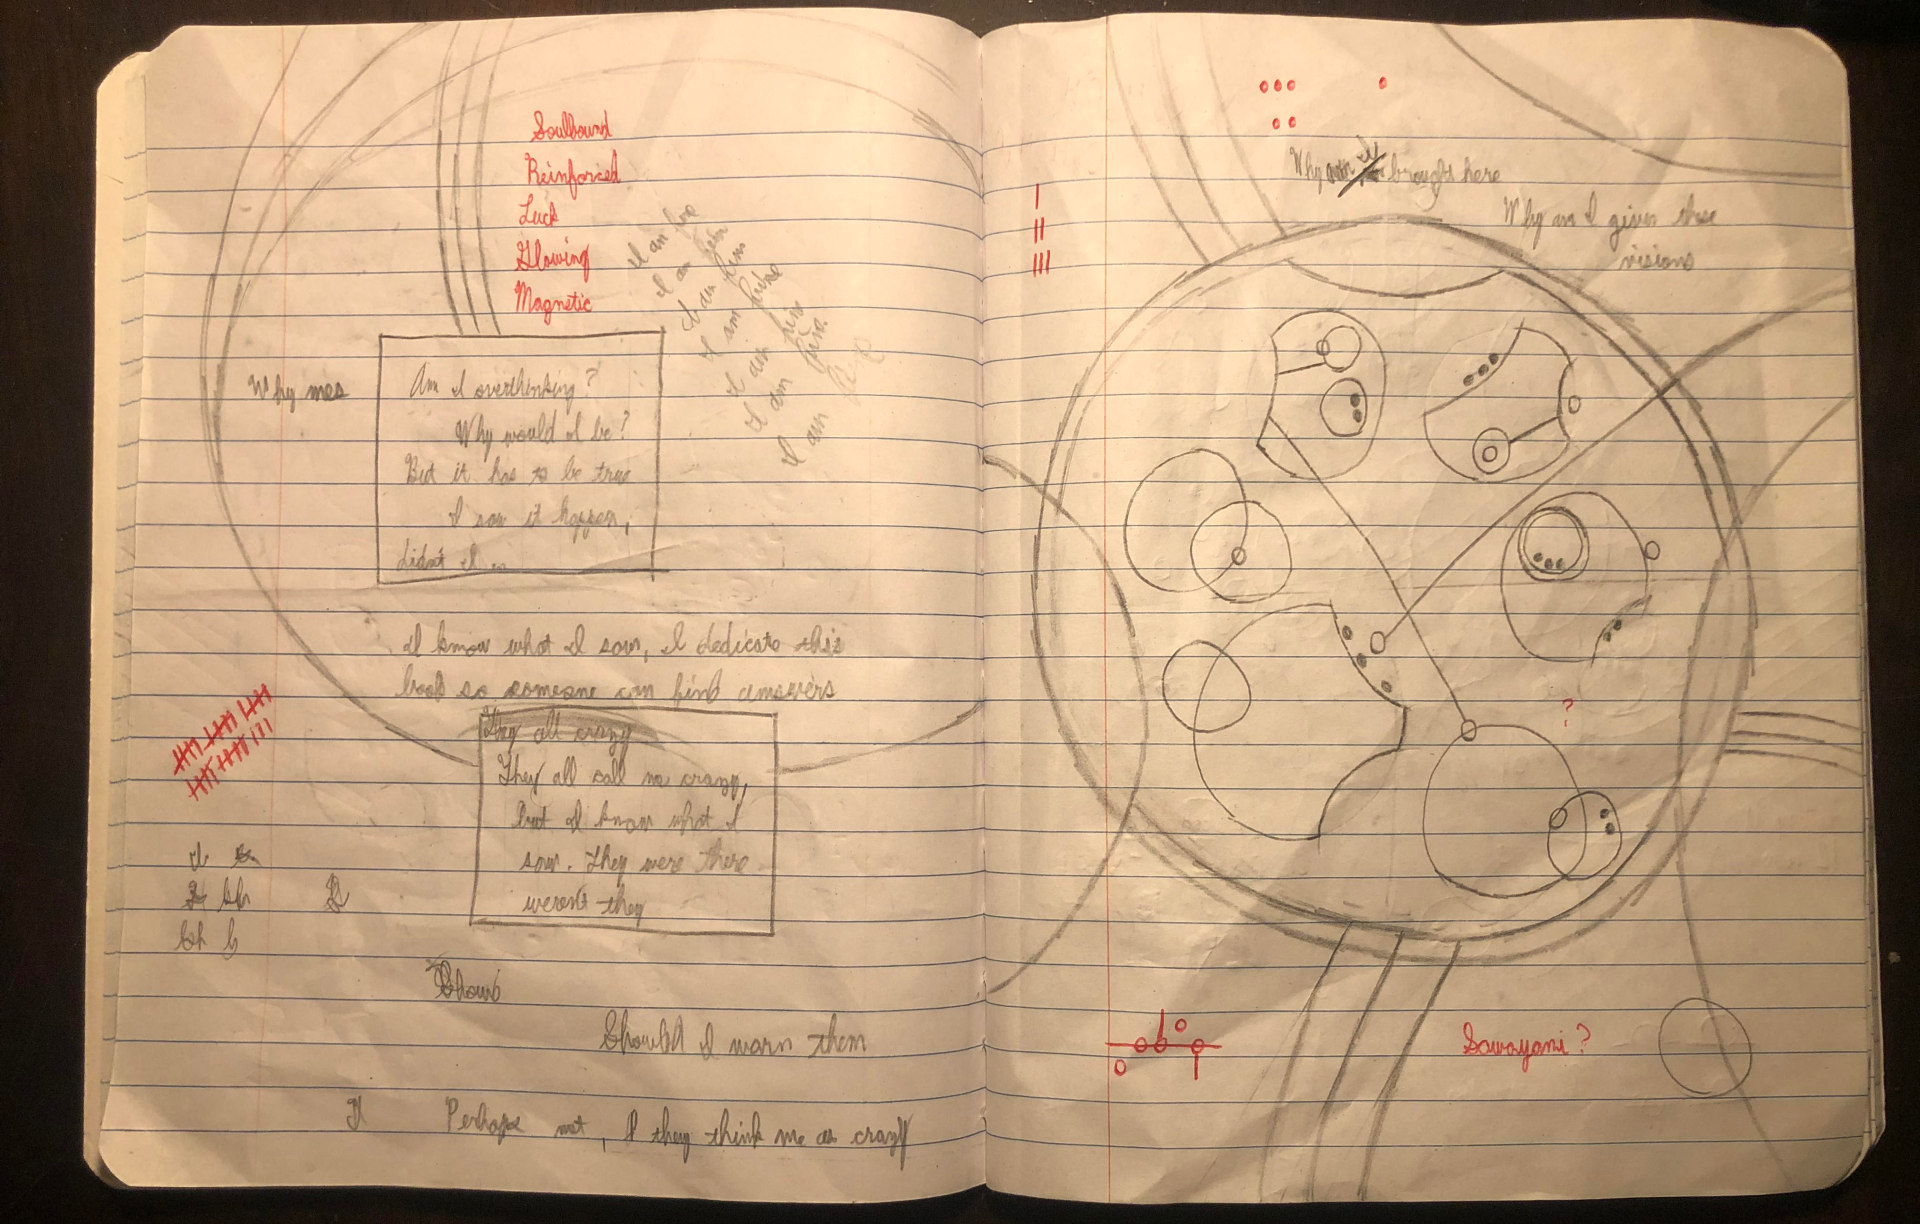 Soulbound
Reinforced
Luck
Glowing
Magnetic
I am here
I am here
I am here
I am here
I am here
I am here
I am
Why me
Am I overthinking?
Why would I be?
But it has to be true
I saw it happen,
didn't I
I know what I saw, I dedicate this
book so someone can find answers
They all crazy
They all call me crazy,
but I know what I
saw. They were there
weren't they
Should I warn them
Perhaps not, I they think me as crazy
Why brought here
Why am I given these
visions
I
II
III
?
Sawayami?